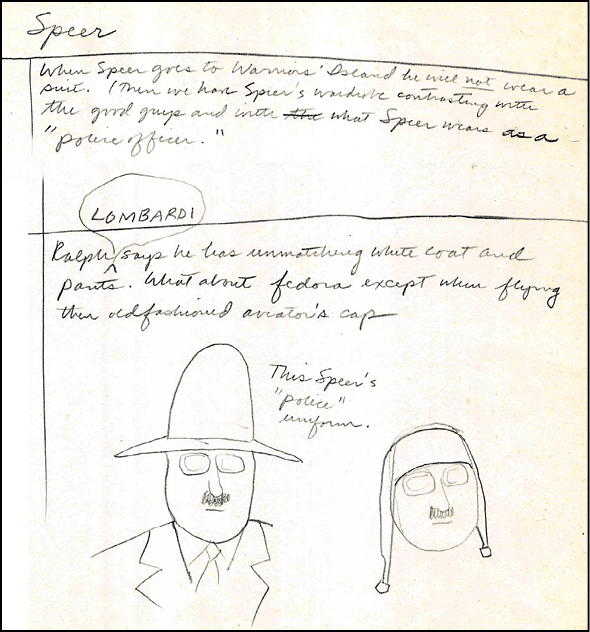 Speer
When Speer goes to Warriors' Island he will not wear a
suit. (Then we have Speer's wardrobe contrasting with
the good guys and with the what Speer wears as a
"police officer."
LOMBARDI
Ralph ^ says he has unmatching white coat and
pants. What about fedora except when flying
then oldfashioned aviator's cap
This Speer's
"police"
uniform.